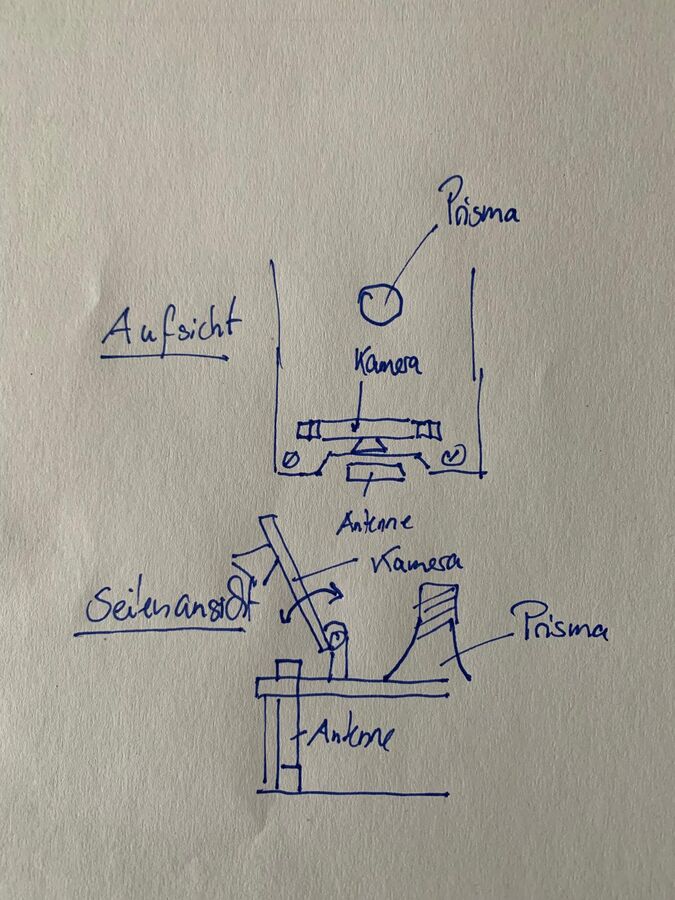 Prisma
Aufsicht
Kamera
Antenne
Kamera
Seitenansicht
Prisma
Antenne